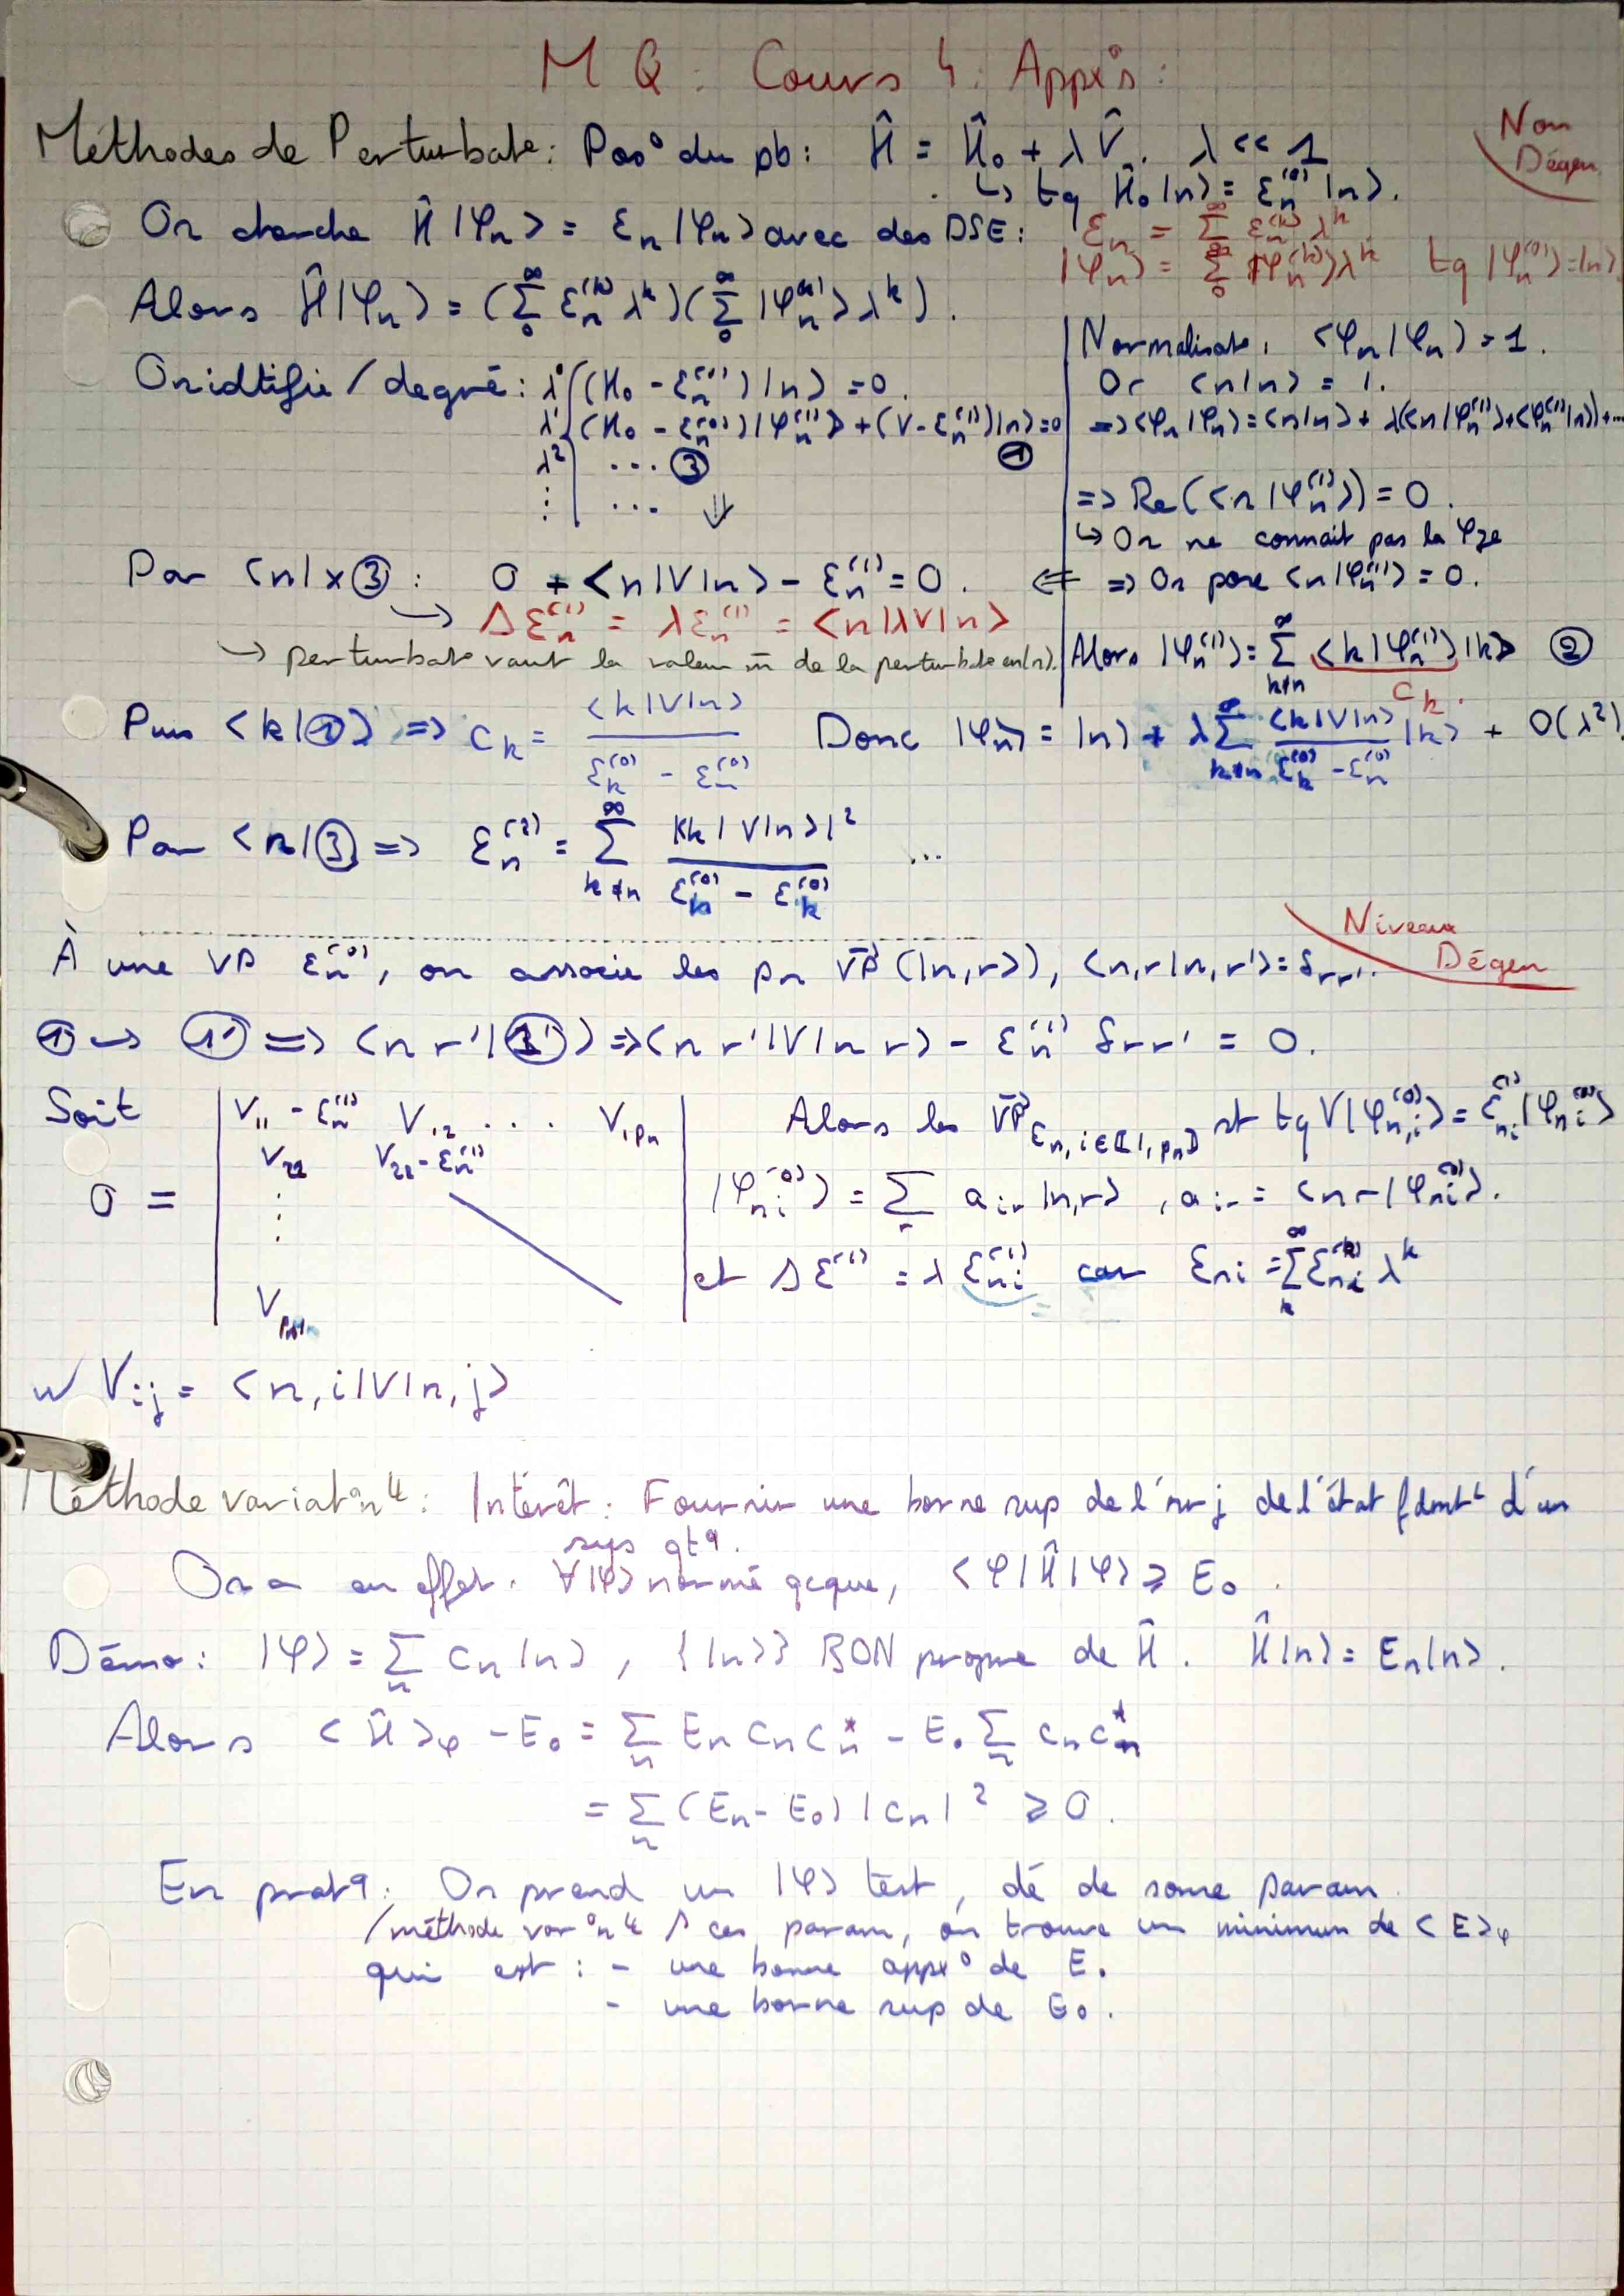 M Q : Cours 4 : Appx°s :
Méthodes de Perturbat° : Pos° du pb : Ĥ = Ĥ₀ + λ V̂. λ << 1
Non Dégen
↳ tq Ĥ₀|n> = ε_n^(0) |n>.
On cherche Ĥ|φ_n> = ε_n|φ_n> avec des DSE : ε_n = Σ_0^∞ ε_n^(k) λ^k
|φ_n> = Σ_0^∞ |φ_n^(k)> λ^k tq |φ_n^(0)> = |n>
Alors Ĥ|φ_n> = (Σ_0^∞ ε_n^(k) λ^k)(Σ_0^∞ |φ_n^(k)> λ^k).
On idtifie / degré : λ⁰ (H₀ - ε_n^(0))|n> = 0.
λ¹ (H₀ - ε_n^(0))|φ_n^(1)> + (V - ε_n^(1))|n> = 0 ①
λ² ... ③
⋮ ... ⇓
Normalisat°. <φ_n|φ_n> = 1.
Or <n|n> = 1.
=> <φ_n|φ_n> = <n|n> + λ(<n|φ_n^(1)> + <φ_n^(1)|n>) + ...
=> Re(<n|φ_n^(1)>) = 0.
↳ On ne connait pas la φze
=> On pose <n|φ_n^(1)> = 0.
Alors |φ_n^(1)> = Σ_{k≠n}^∞ <k|φ_n^(1)> |k> ②
c_k.
Par <n| x ③ : 0 + <n|V|n> - ε_n^(1) = 0. <=
↪ Δε_n^(1) = λε_n^(1) = <n|λV|n>
→ perturbat° vaut la valeur m̄ de la perturbat° en |n>.
Puis <k|①> => c_k = <k|V|n> / (ε_k^(0) - ε_n^(0)) Donc |φ_n> = |n> + λ Σ_{k≠n}^∞ <k|V|n> / (ε_k^(0) - ε_n^(0)) |k> + O(λ²)
Par <n|③ => ε_n^(2) = Σ_{k≠n}^∞ |<k|V|n>|² / (ε_n^(0) - ε_k^(0)) ...
Niveaux Dégen
À une VP ε_n^(0), on associe les p_n VP⃗ (|n,r>), <n,r|n,r'> = δ_rr'.
① → ①' => <n r'|①'> => <n r'|V|n r> - ε_n^(1) δ_rr' = 0.
Soit 0 =
V_11 - ε_n^(1) V_12 . . . V_1p_n
V_22 V_22 - ε_n^(1)
⋮
V_p_n1
Alors les VP⃗_{ε_n, i∈⟦1,p_n⟧} st tq V|φ_{n,i}^(0)> = ε_{ni}^(1) |φ_{ni}^(0)>
|φ_{ni}^(0)> = Σ_r a_ir |n,r> , a_ir = <n r|φ_{ni}^(0)>.
et Δε^(1) = λ ε_{ni}^(1) car ε_ni = Σ_k ε_{ni}^(k) λ^k
w V_ij = <n,i|V|n,j>
Méthode variat°nle : Intérêt : Fournir une borne sup de l'nrj de l'état fdmtl d'un
sys qtq.
On a en effet. ∀|φ> normé qcque, <φ|Ĥ|φ> ≥ E₀.
Démo : |φ> = Σ_n c_n |n> , {|n>} BON propre de Ĥ. Ĥ|n> = E_n|n>.
Alors <Ĥ>_φ - E₀ = Σ_n E_n c_n c_n* - E₀ Σ_n c_n c_n*
= Σ_n (E_n - E₀) |c_n|² ≥ 0.
En pratq : On prend un |φ> test, dé de some param.
/ méthode var°nle / ces param, on trouve un minimum de <E>_φ
qui est : - une bonne appx° de E₀
- une borne sup de E₀.